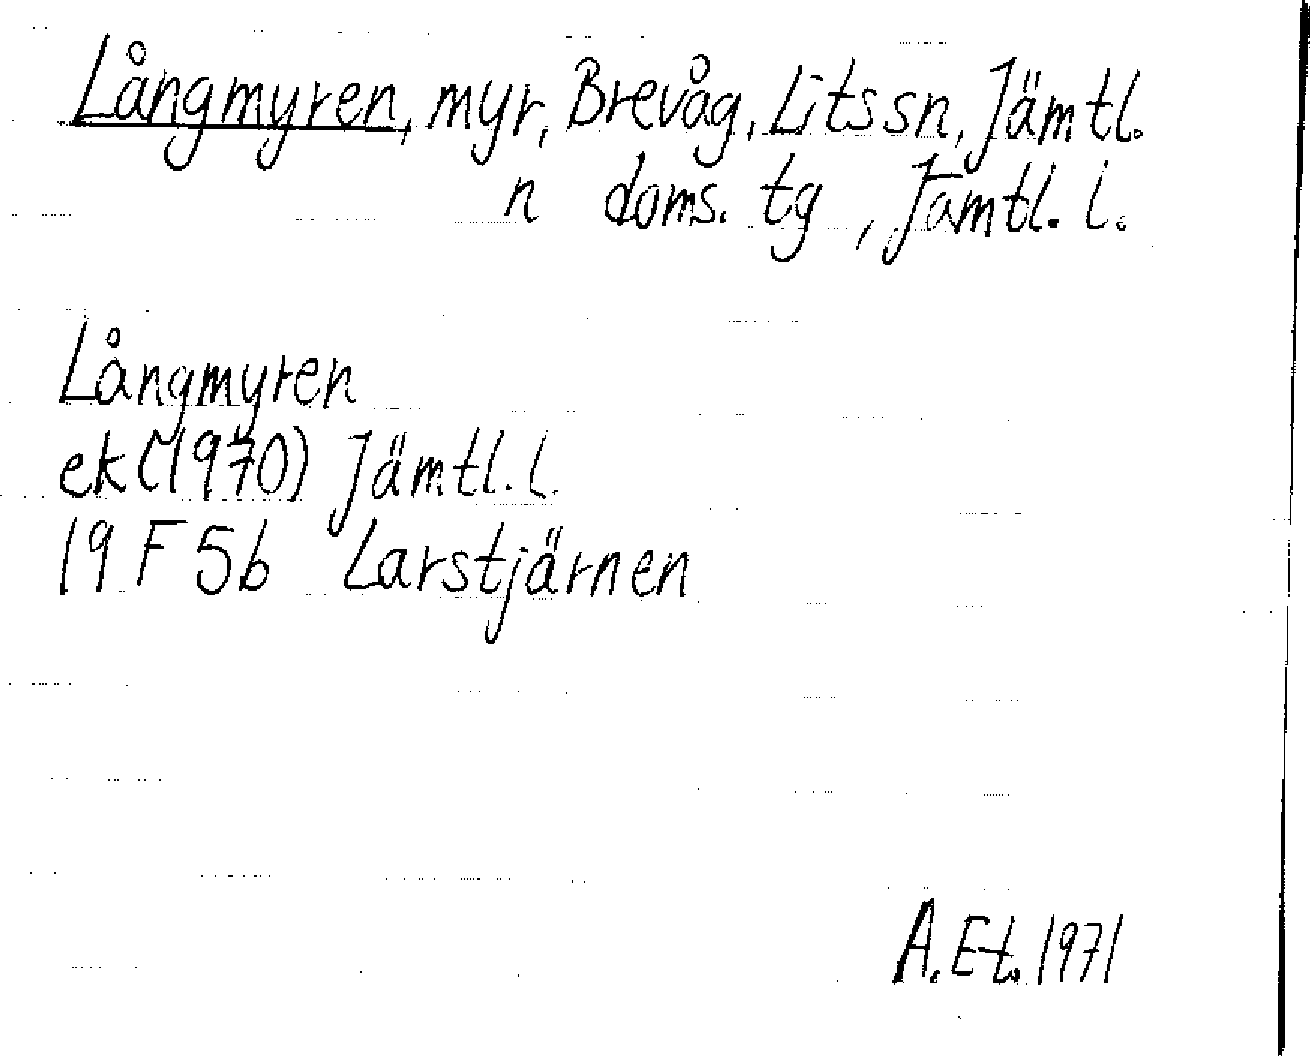 Långmyren, myr, Brevåg, Lits sn, Jämtl.
n doms. tg, Jämtl. l.
Långmyren
ek (1970) Jämtl. l.
19 F 5b Larstjärnen
A. Et. 1971